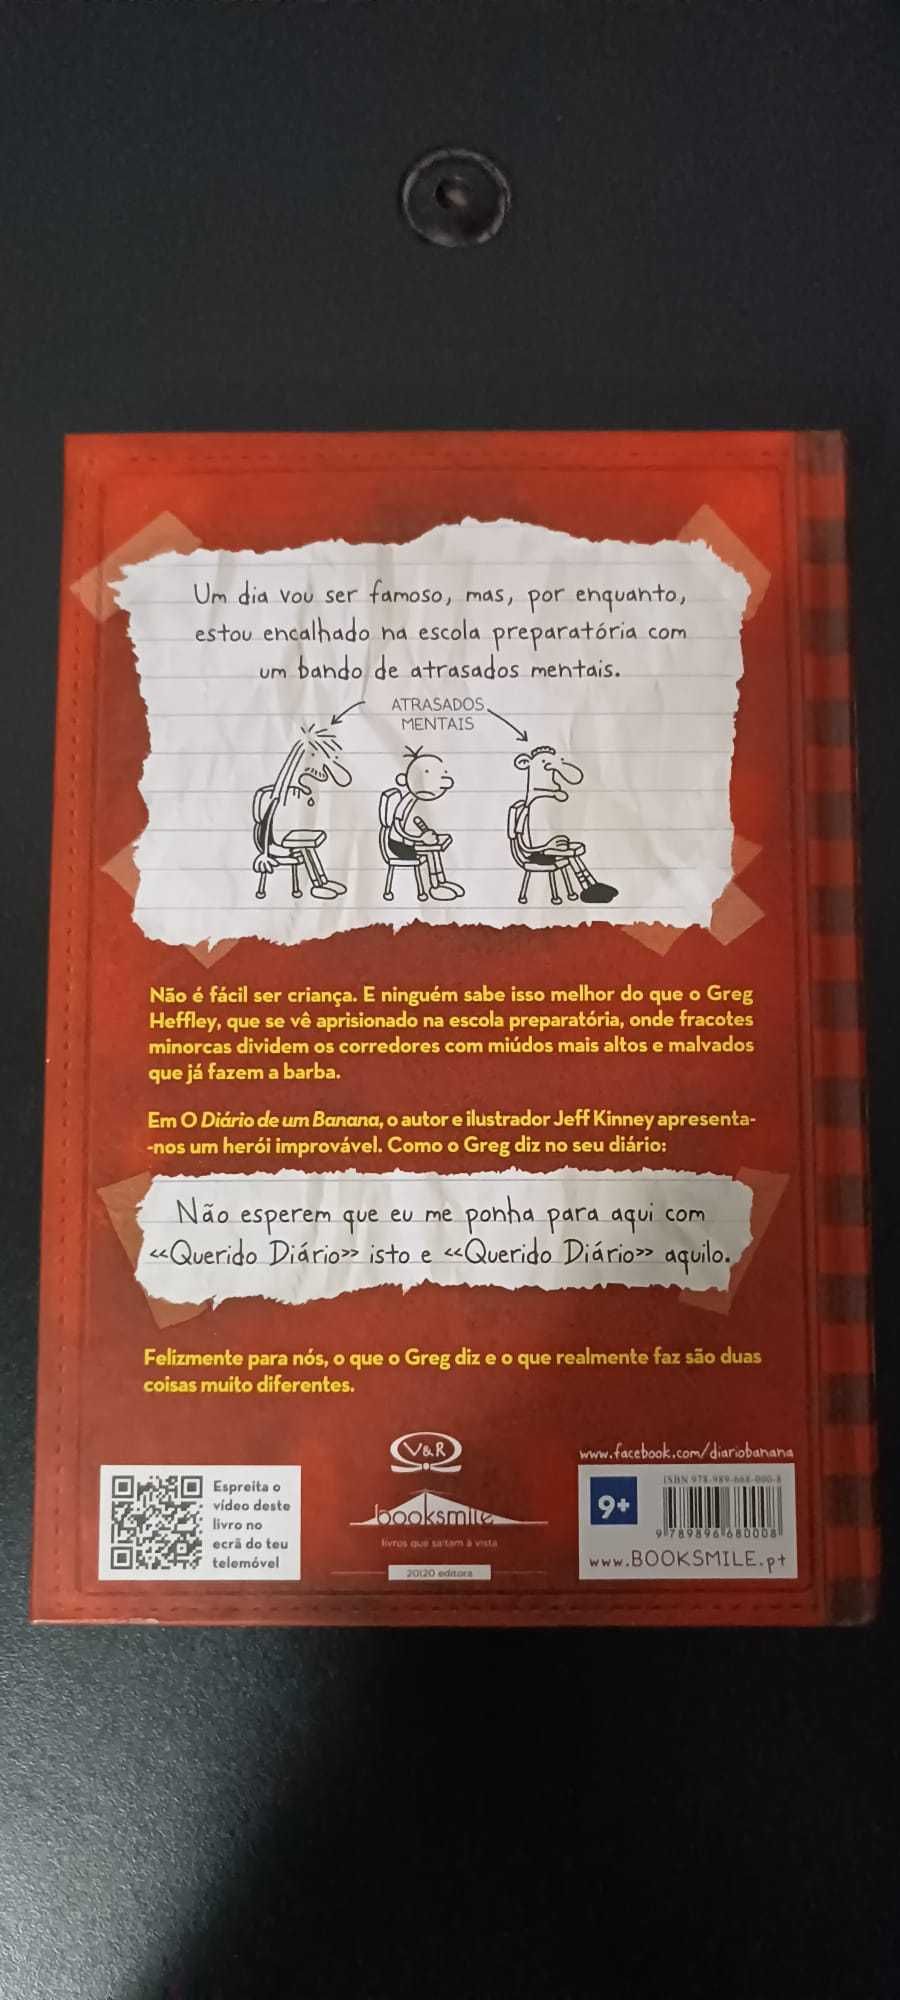 Um dia vou ser famoso, mas, por enquanto,
estou encalhado na escola preparatória com
um bando de atrasados mentais.
ATRASADOS
MENTAIS
Não é fácil ser criança. E ninguém sabe isso melhor do que o Greg
Heffley, que se vê aprisionado na escola preparatória, onde fracotes
minorcas dividem os corredores com miúdos mais altos e malvados
que já fazem a barba.
Em O Diário de um Banana, o autor e ilustrador Jeff Kinney apresenta-
-nos um herói improvável. Como o Greg diz no seu diário:
Não esperem que eu me ponha para aqui com
«Querido Diário» isto e «Querido Diário» aquilo.
Felizmente para nós, o que o Greg diz e o que realmente faz são duas
coisas muito diferentes.
Espreita o
vídeo deste
livro no
ecrã do teu
telemóvel
V&R
booksmile
livros que saltam à vista
20|20 editora
www.facebook.com/diariobanana
ISBN 978-989-668-000-8
9+
9 789896 680008
www.BOOKSMILE.pt